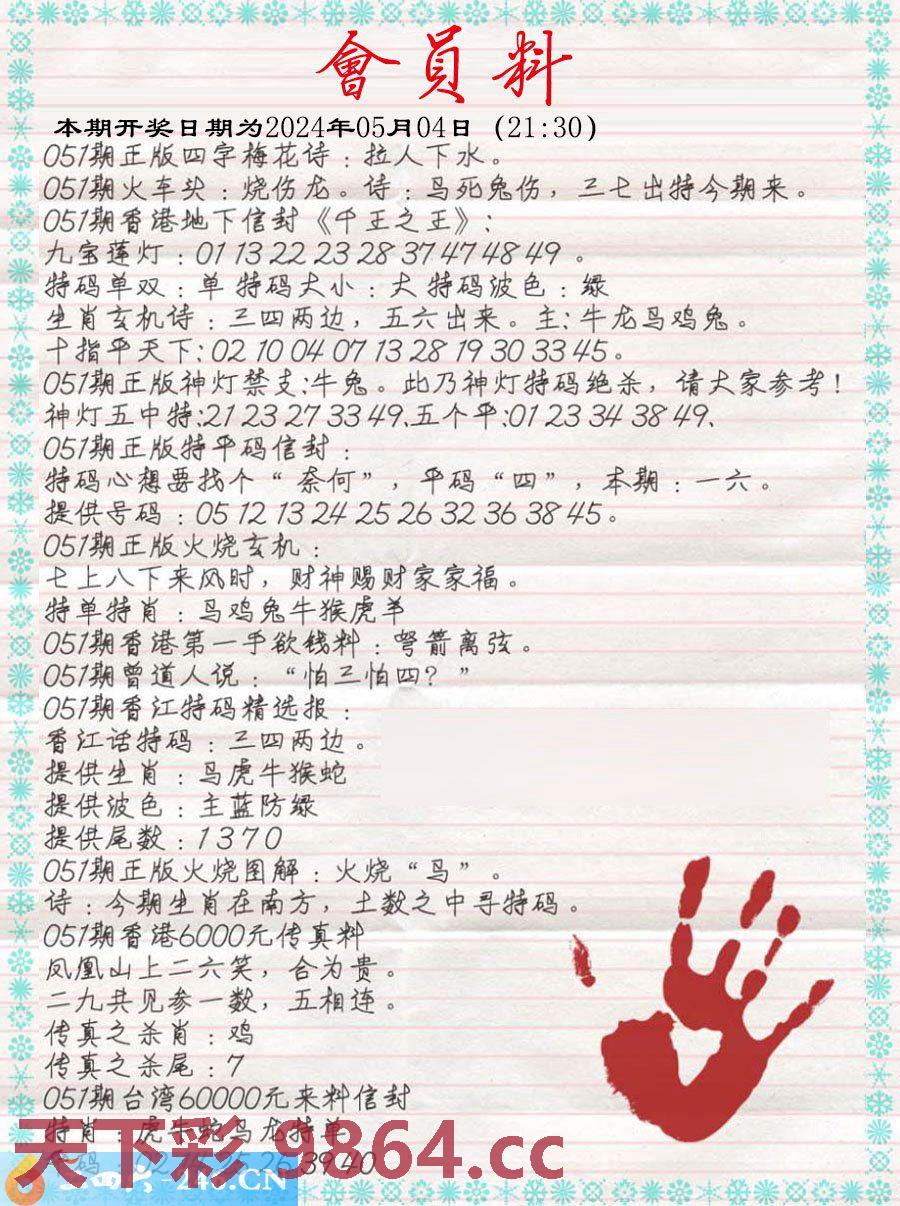 會員料
本期开奖日期为2024年05月04日（21:30）
051期正版四字梅花诗：拉人下水。
051期火车头：烧伤龙。诗：鸟死兔伤，三七出特今期来。
051期香港地下信封《千王之王》：
九宝莲灯：01 13 22 23 28 37 47 48 49 。
特码单双：单 特码大小：大 特码波色：绿
生肖玄机诗：三四两边，五六出来。主：牛龙鸟鸡兔。
十指平天下：02 10 04 07 13 28 19 30 33 45。
051期正版神灯禁支：牛兔。此乃神灯特码绝杀，请大家参考！
神灯五中特：21 23 27 33 49.五个平：01 23 34 38 49.
051期正版特平码信封：
特码心想要找个“奈何”，平码“四”，本期：一六。
提供号码：05 12 13 24 25 26 32 36 38 45。
051期正版火烧玄机：
七上八下来风时，财神赐财家家福。
特单特肖：鸟鸡兔牛猴虎羊
051期香港第一手欲钱料：弩箭离弦。
051期曾道人说：“怕三怕四？”
051期香江特码精选报：
香江话特码：三四两边。
提供生肖：鸟虎牛猴蛇
提供波色：主蓝防绿
提供尾数：1 3 7 0
051期正版火烧图解：火烧“鸟”。
诗：今期生肖在南方，土数之中寻特码。
051期香港6000元传真料
凤凰山上二六笑，合为贵。
二九共见参一数，五相连。
传真之杀肖：鸡
传真之杀尾：7
051期台湾60000元来料信封
特肖：虎牛蛇鸟龙特单
天下彩 9864.cc
39 40
246.CN